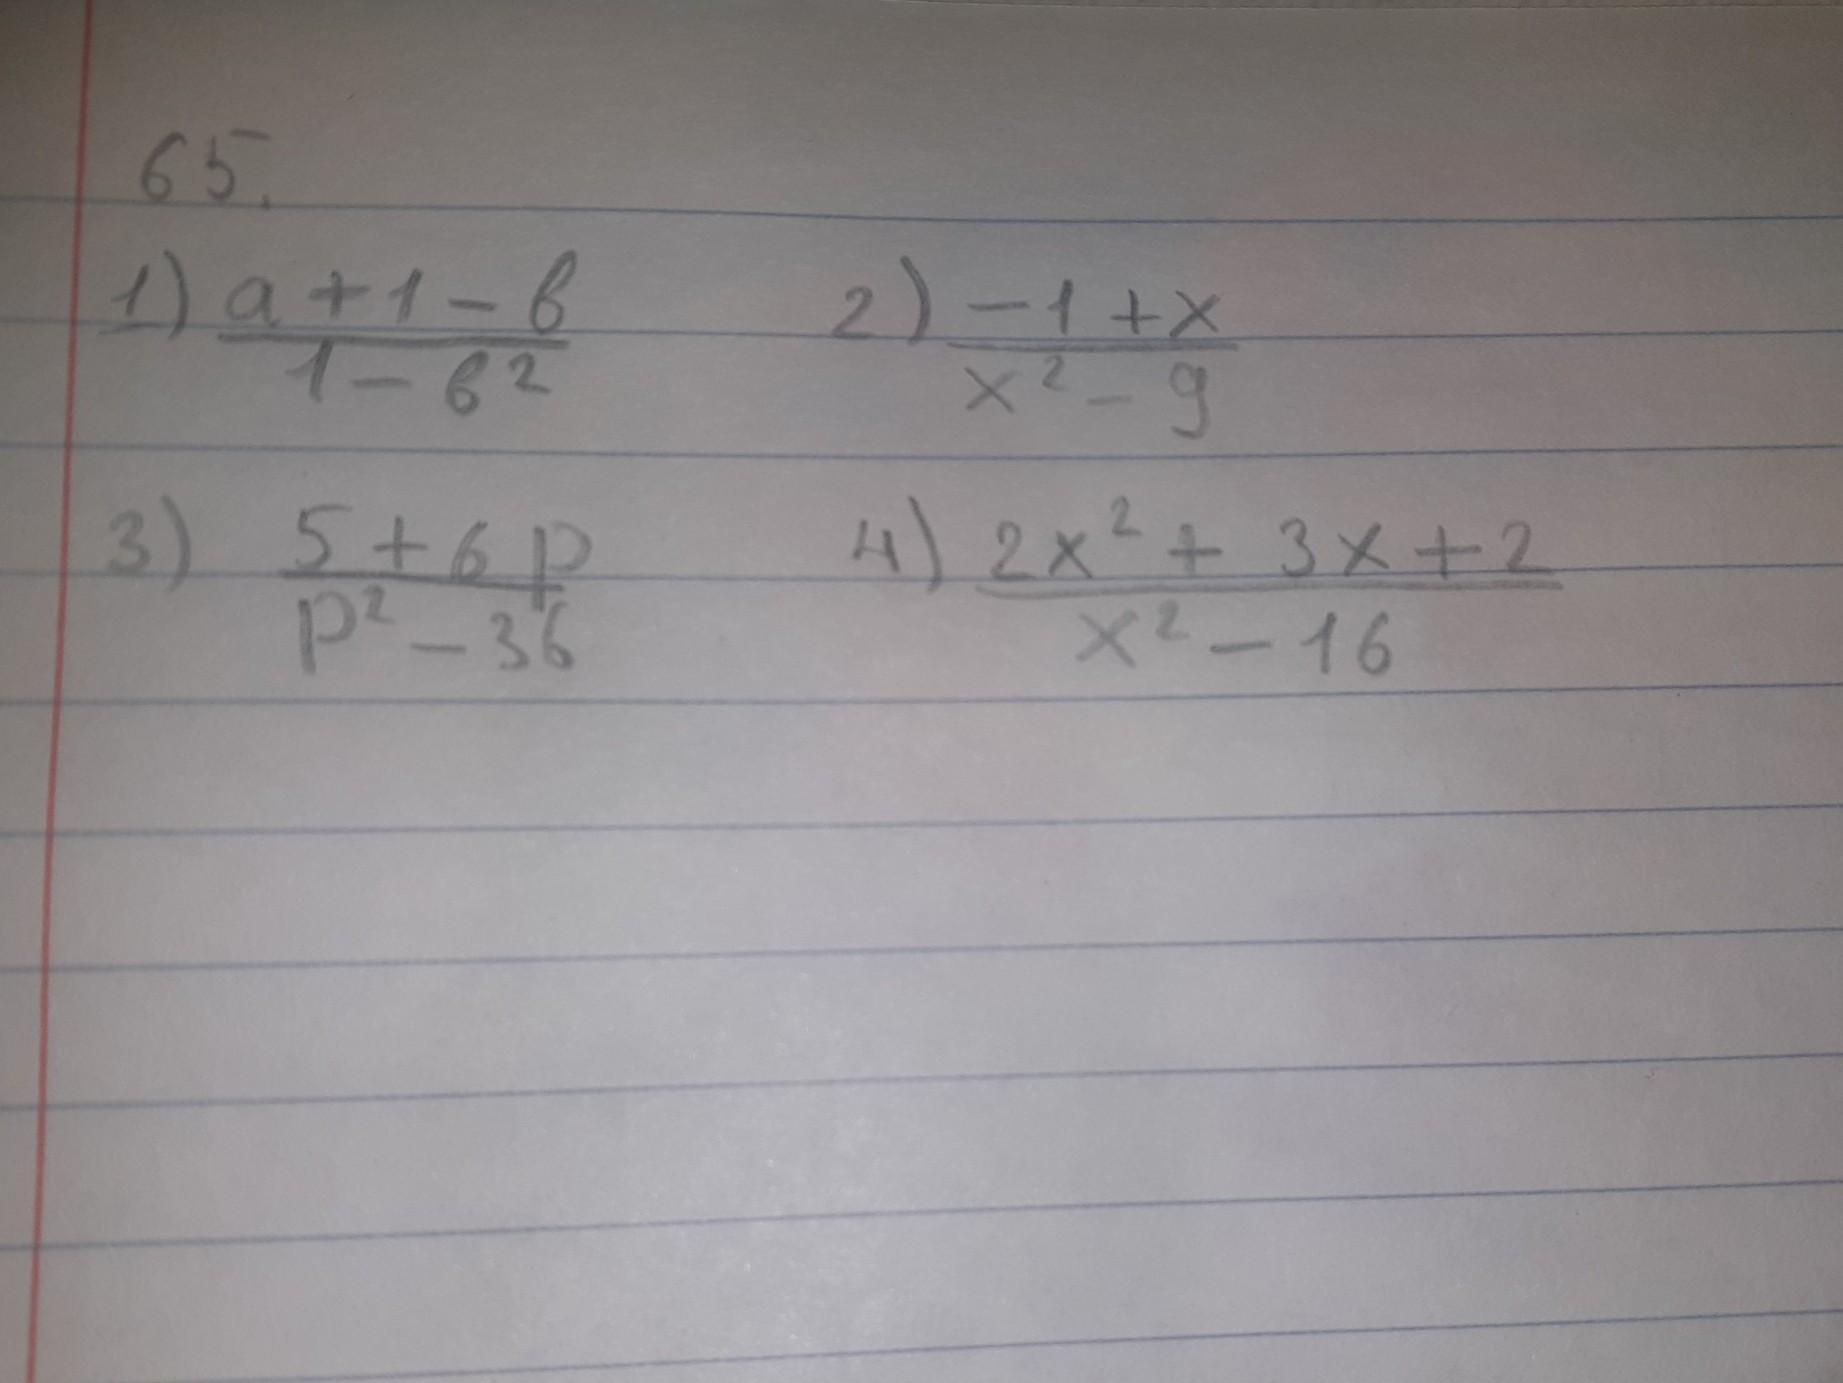 65.
1) a + 1 - b / 1 - b² 2) -1 + x / x² - 9
3) 5 + 6p / p² - 36 4) 2x² + 3x + 2 / x² - 16